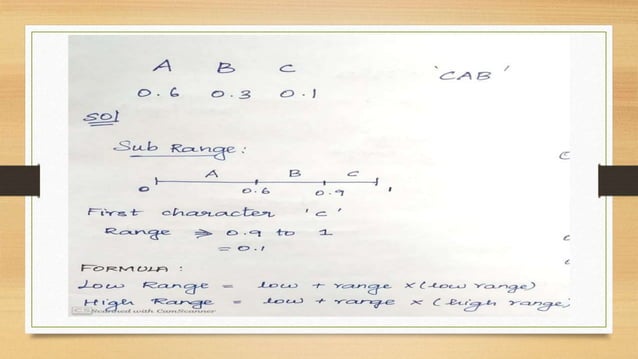 A B C
'CAB'
0.6 0.3 0.1
Sol
Sub Range:
A B C
0 0.6 0.9 1
First character 'c'
Range ⇒ 0.9 to 1
= 0.1
FORMULA :
Low Range = low + range x (low range)
High Range = low + range x (high range)
CS Scanned with CamScanner